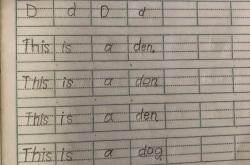 D d D d
This is a den.
This is a den
This is a den
This is a dog